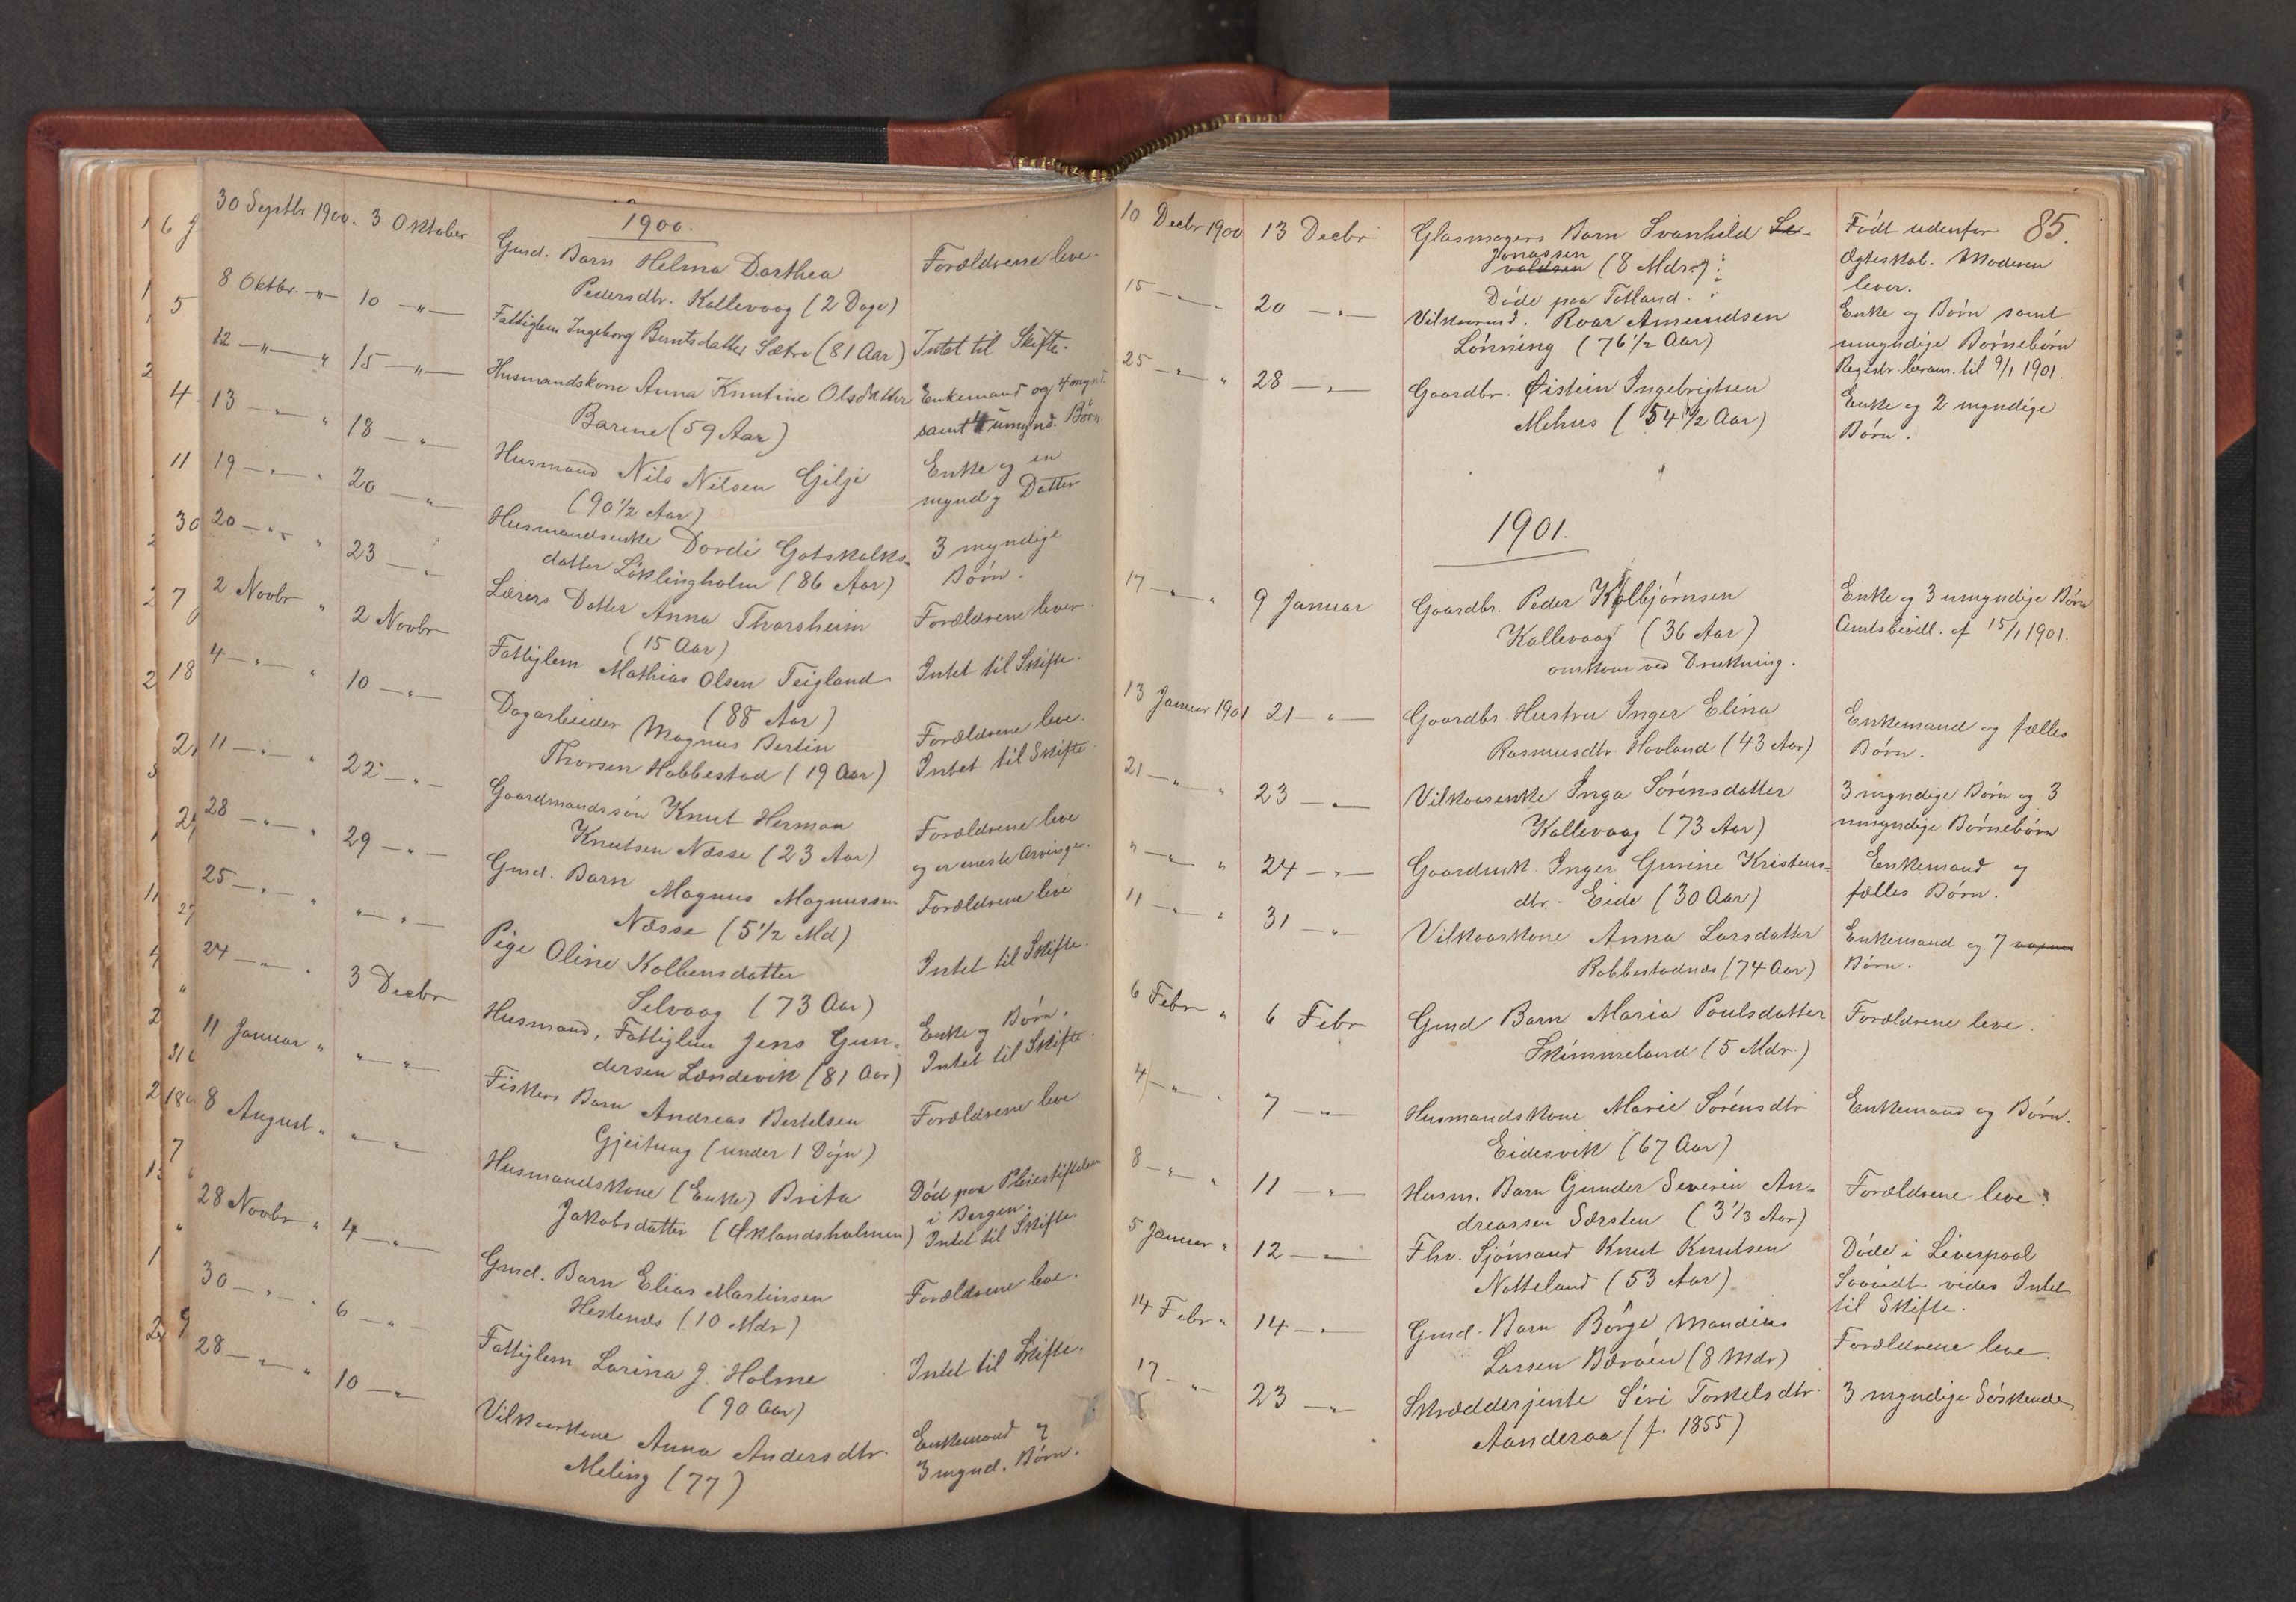 1900.
30 Septbr 1900. 3 Oktober Gmd. Barn Helma Dorthea Forældrene leve.
Pedersdtr. Kallevaag (2 Dage)
8 Oktbr. -"- 10 -"- Fattiglem Ingeborg Berntsdatter Sætre (81 Aar) Intet til Skifte.
12 -"- " 15 -"- Husmandskone Anna Knutine Olsdatter Enkemand og 4 mynd.
Barme (59 Aar) samt 4 umynd. Børn
13 -"- " 18 -"- Husmand Nils Nilsen Gilje Enke og en
(90 1/2 Aar) myndig Datter
19 -"- " 20 -"- Husmandsenke Dordi Gotskalks- 3 myndige
datter Löklingholm (86 Aar) Børn.
20 -"- " 23 -"- Lærers Datter Anna Thorsheim Forældrene lever.
(15 Aar)
2 Novbr " 2 Novbr Fattiglem Mathias Olsen Teigland Intet til Skifte.
(88 Aar)
4 -"- " 10 -"- Dagarbeider Magnus Bertin Forældrene leve.
Thorsen Habbestad (19 Aar) Intet til Skifte.
11 -"- " 22 -"- Gaardmandssøn Knut Herman Forældrene leve
Knutsen Næsse (23 Aar) og er eneste Arvinge.
28 -"- " 29 -"- Gmd. Barn Magnus Magnussen Forældrene leve
Næsse (5 1/2 Md)
25 -"- " " -"- Pige Oline Kolbensdatter Intet til Skifte.
Selvaag (73 Aar)
24 -"- " 3 Decbr Husmand, Fattiglem Jens Gun- Enke og Børn.
dersen Lændevik (81 Aar) Intet til Skifte.
11 Januar " " -"- Fiskers Barn Andreas Bertelsen Forældrene leve
Gjeitung (under 1 Døgn)
8 August " " -"- Husmandskone (Enke) Brita Død paa Pleiestiftelsen
Jakobsdatter (Øklandsholmen) i Bergen.
Intet til Skifte
28 Novbr " 4 -"- Gmd. Barn Elias Martinsen Forældrene leve.
Hestenæs (10 Mdr)
30 -"- " 6 -"- Fattiglem Larina J. Holme Intet til Skifte.
(90 Aar)
28 -"- " 10 -"- Vilkaarskone Anna Andersdtr. Enkemand og
Meling (77) 3 mynd. Børn.
85.
10 Decbr 1900 13 Decbr Glasmagers Barn Svanhild Le- Født udenfor
Jonassen Ægteskab. Moderen
valdsen (8 Mdr.) lever.
Døde paa Totland.
15 -"- 20 -"- Vilkaarmd. Roar Amundsen Enke og Børn samt
Lønning (76 1/2 Aar) umyndige Børnebørn
Registr. beram. til 9/1 1901.
25 -"- " 28 -"- Gaardbr. Øistein Ingebrigtsen Enke og 2 myndige
Mehus (54 1/2 Aar) Børn.
1901.
17 -"- " 9 Januar Gaardbr. Peder Kolbjørnsen Enke og 3 umyndige Børn
Kallevaag (36 Aar) Amtsbevill. af 15/1 1901.
omkom ved Drukning.
13 Januar 1901 21 -"- Gaardbr. Hustru Inger Elina Enkemand og fælles
Rasmusdtr. Hovland (43 Aar) Børn.
21 -"- " 23 -"- Vilkaarsenke Inga Sørensdatter 3 myndige Børn og 3
Kallevaag (73 Aar) umyndige Børnebørn
" -"- " 24 -"- Gaardmk. Inger Gurine Kristens- Enkemand og
dtr. Eide (30 Aar) fælles Børn.
11 -"- " 31 -"- Vilkaarskone Anna Larsdatter Enkemand og 7
Robbestadnæs (74 Aar) Børn.
6 Febr " 6 Febr Gmd Barn Maria Poulsdatter Forældrene leve.
Skimmeland (5 Mdr.)
4 -"- " 7 -"- Husmandskone Marie Sørensdtr Enkemand og Børn.
Eidesvik (67 Aar)
8 -"- " 11 -"- Husm. Barn Gunder Severin An- Forældrene leve
dreassen Særsten (3 1/3 Aar)
5 Januar " 12 -"- Fhv. Sjømand Knut Knutsen Døde i Liverpool
Notteland (53 Aar) Saavidt vides Intet
til Skifte.
14 Febr " 14 -"- Gmd. Barn Børge Mandius Forældrene leve.
Larsen Bærøen (8 Mdr)
17 -"- 23 -"- Skrædderjente Siri Torkelsdtr. 3 myndige Søskende
Aanderaa (f. 1855)